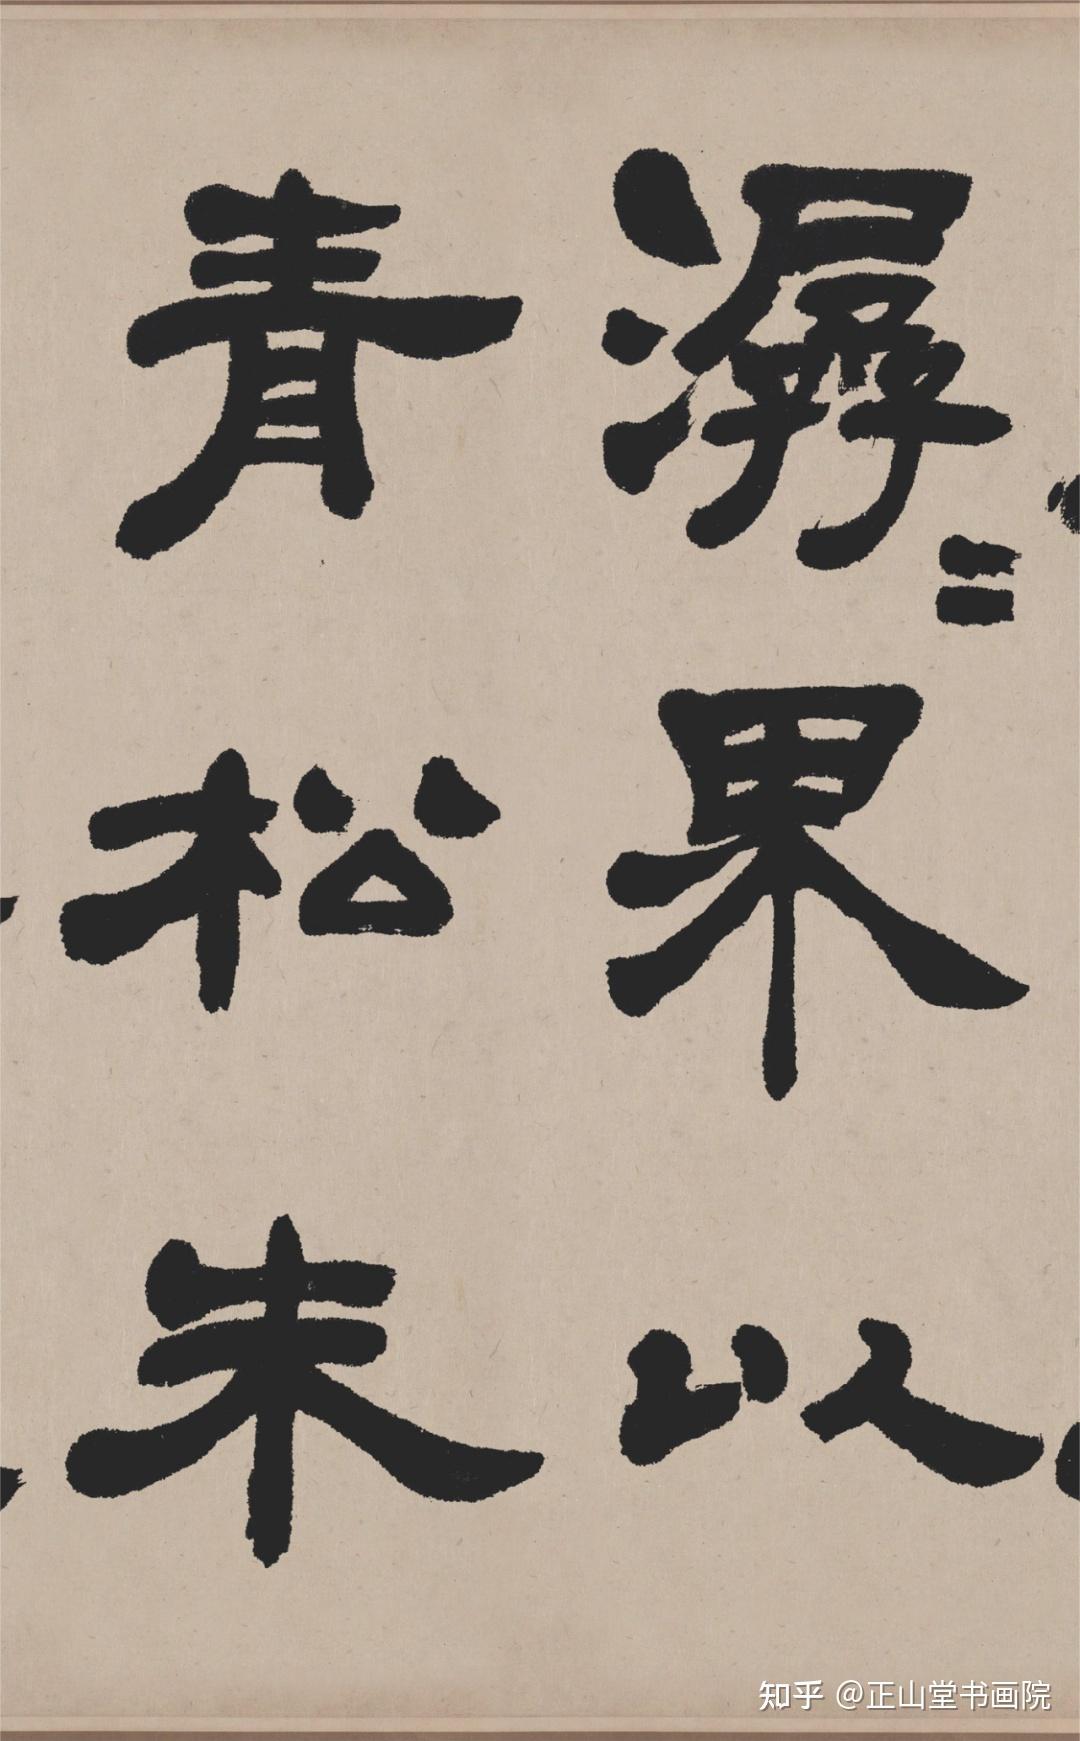 潺〻果以
青松朱
知乎 @正山堂书画院